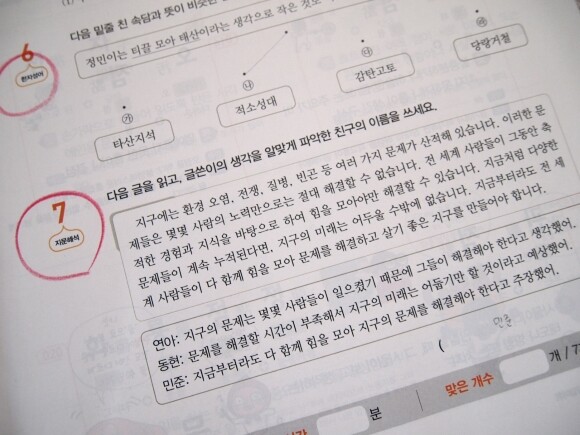 다음 밑줄 친 속담과 뜻이 비슷한
6
한자성어
정민이는 티끌 모아 태산이라는 생각으로 작은 것도
㉮
타산지석
㉯
적소성대
㉰
감탄고토
㉱
당랑거철
7
지문해석
다음 글을 읽고, 글쓴이의 생각을 알맞게 파악한 친구의 이름을 쓰세요.
지구에는 환경 오염, 전쟁, 질병, 빈곤 등 여러 가지 문제가 산적해 있습니다. 이러한 문
제들은 몇몇 사람의 노력만으로는 절대 해결할 수 없습니다. 전 세계 사람들이 그동안 축
적한 경험과 지식을 바탕으로 하여 힘을 모아야만 해결할 수 있습니다. 지금처럼 다양한
문제들이 계속 누적된다면, 지구의 미래는 어두울 수밖에 없습니다. 지금부터라도 전 세
계 사람들이 다 함께 힘을 모아 문제를 해결하고 살기 좋은 지구를 만들어야 합니다.
연아: 지구의 문제는 몇몇 사람들이 일으켰기 때문에 그들이 해결해야 한다고 생각했어.
동현: 문제를 해결할 시간이 부족해서 지구의 미래는 어둡기만 할 것이라고 예상했어.
민준: 지금부터라도 다 함께 힘을 모아 지구의 문제를 해결해야 한다고 주장했어.
( 민준
시간 분 맞은 개수 개 / 7